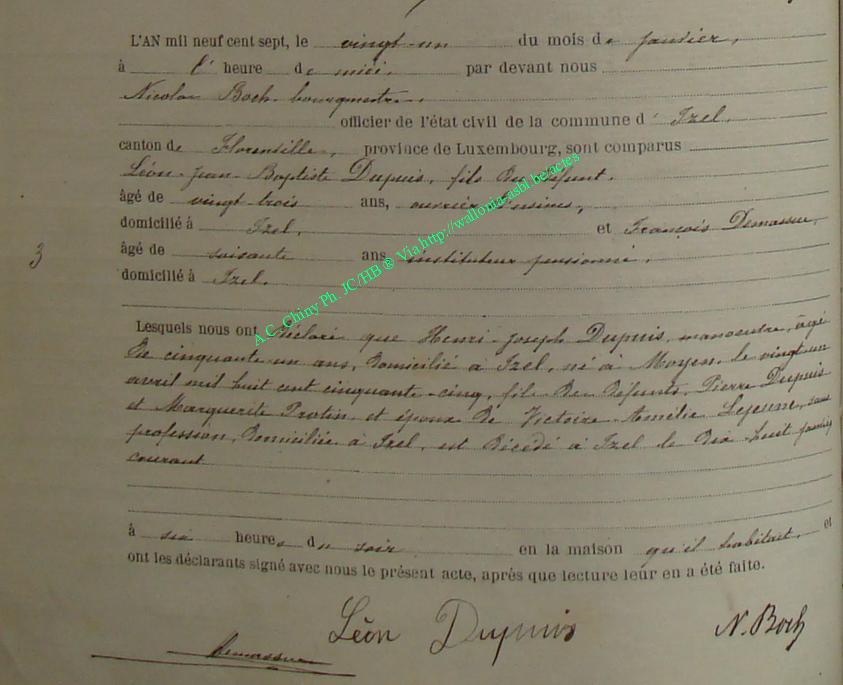 L'AN mil neuf cent sept, le vingt-un du mois de janvier,
à l' heure de midi, par devant nous
Nicolas Boch bourgmestre,
officier de l'état civil de la commune d' Izel,
canton de Florenville, province de Luxembourg, sont comparus
Léon-Jean-Baptiste Dupuis, fils du défunt,
âgé de vingt-trois ans, ouvrier d'usines,
domicilié à Izel, et François Demasseu,
âgé de soisante ans, instituteur pensionné,
domicilié à Izel.
3
Lesquels nous ont déclaré que Henri-Joseph Dupuis, manoeuvre, âgé
de cinquante-un ans, domicilié à Izel, né à Moyen, le vingt-un
avril mil huit cent cinquante-cinq, fils de défunts, Pierre Dupuis
et Marguerite Protin et époux de Victoire-Amélie Lejeune, sans
profession, domiciliée à Izel, est décédé à Izel le dix-huit janvier
courant
à six heures du soir en la maison qu'il habitait, et
ont les déclarants signé avec nous le présent acte, après que lecture leur en a été faite.
Léon Dupuis N. Boch
A.C. Chiny Ph. JC/HB ® Via http://wallonia-asbl.be/actes